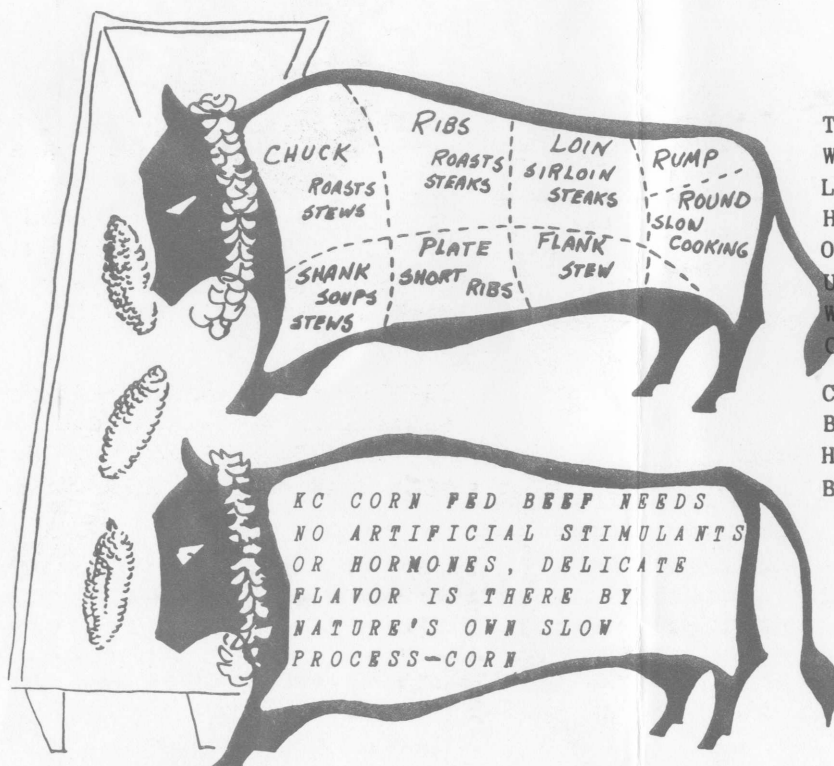 CHUCK
ROASTS
STEWS
RIBS
ROASTS
STEAKS
LOIN
SIRLOIN
STEAKS
RUMP
ROUND
SLOW
COOKING
SHANK
SOUPS
STEWS
PLATE
SHORT
RIBS
FLANK
STEW
KC CORN FED BEEF NEEDS
NO ARTIFICIAL STIMULANTS
OR HORMONES, DELICATE
FLAVOR IS THERE BY
NATURE'S OWN SLOW
PROCESS-CORN